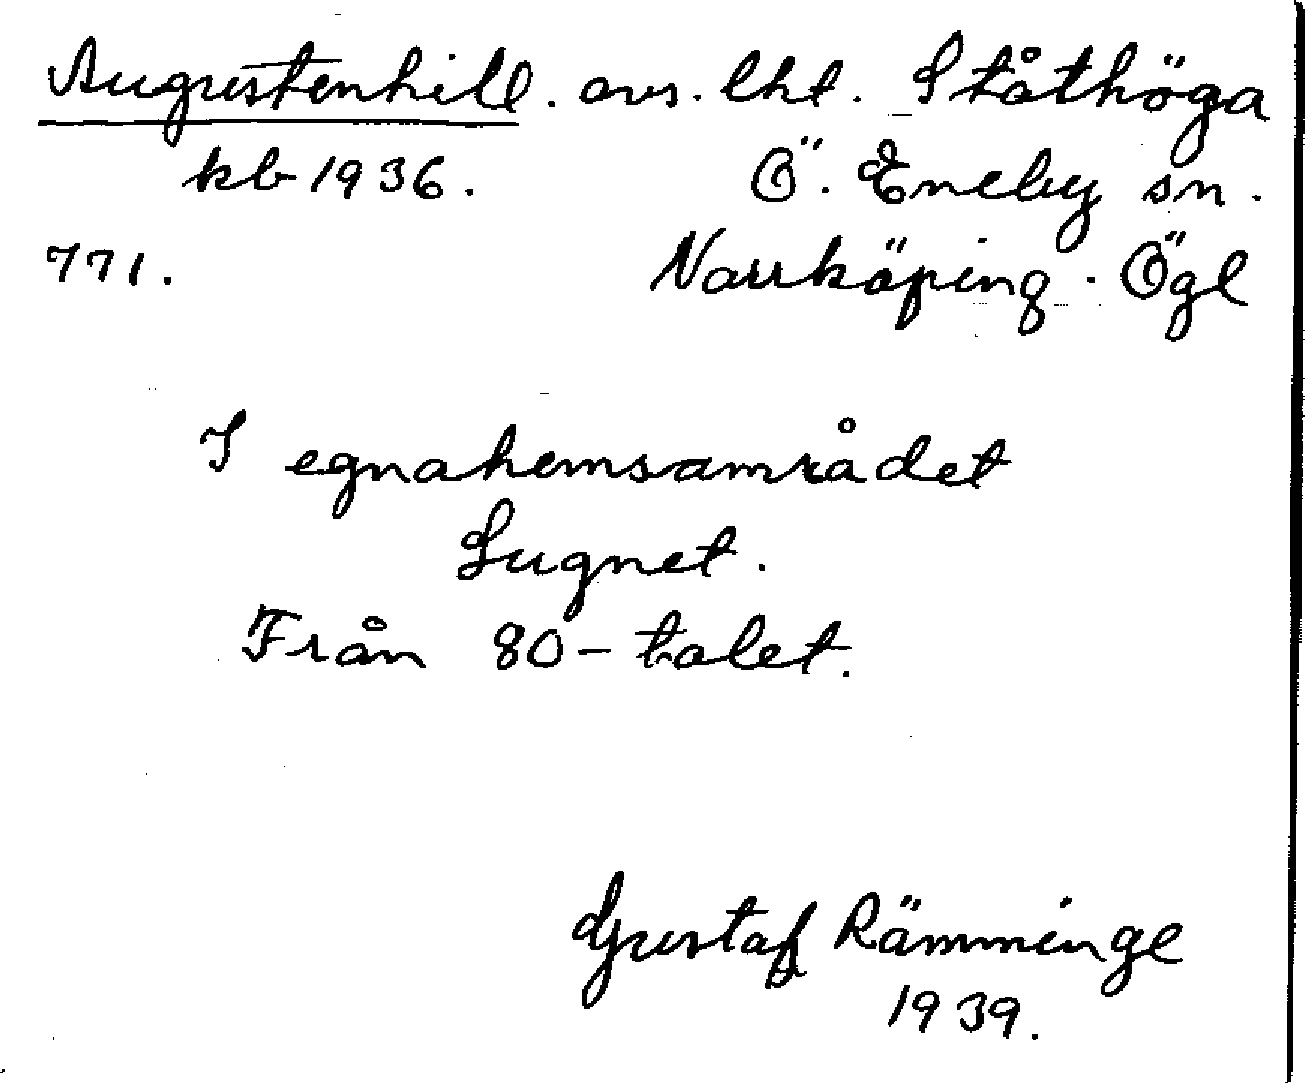 Augustenhill. avs. lht. Ståthöga
kb 1936. Ö. Eneby sn.
771. Norrköping. Ögl
I egnahemsområdet
Lugnet.
Från 80-talet.
Gustaf Rämminge
1939.